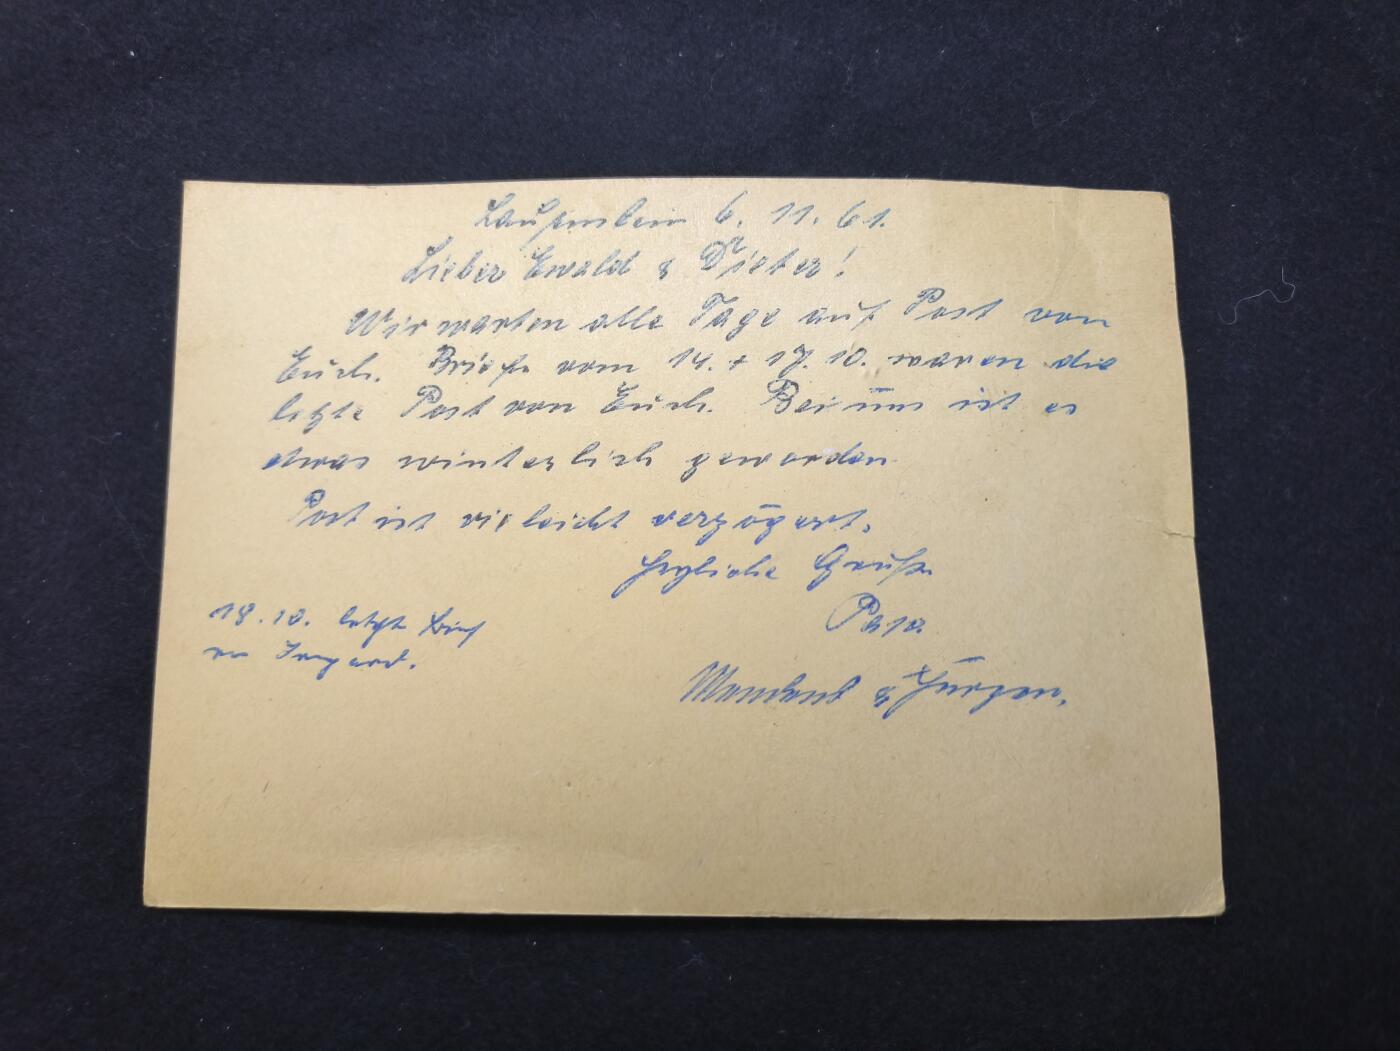 Lauenstein 6. 11. 61.
Lieber Ewald & Dieter!
Wir warten alle Tage auf Post von
Euch. Briefe vom 14. + 17. 10. waren die
letzte Post von Euch. Bei uns ist es
etwas winterlich geworden.
Post ist vieleicht verzögert.
Herzliche Grüße
Papa
& Jürgen.
18.10. letzte Brief
von Irmgard.